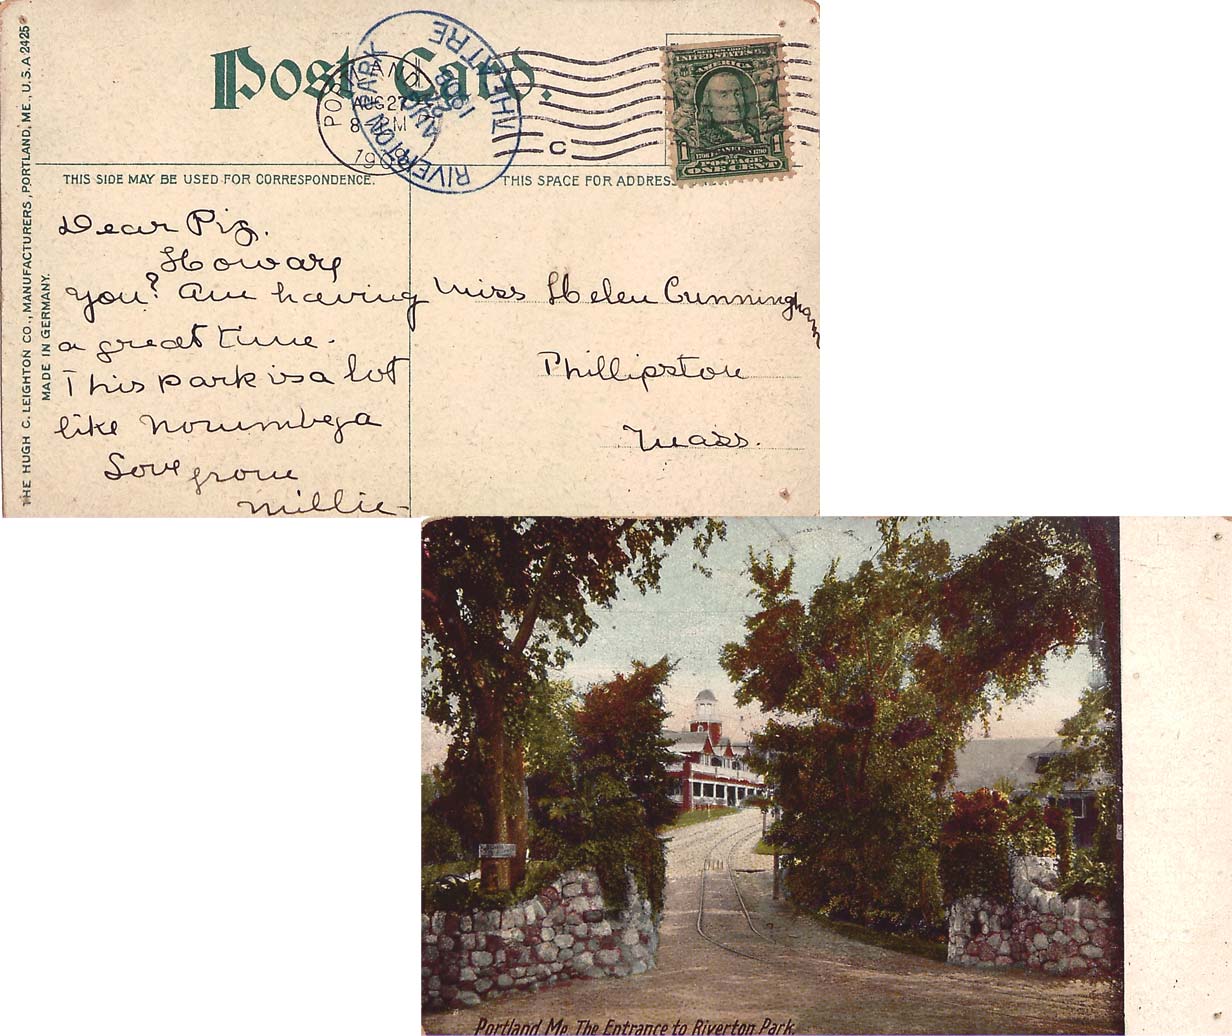 Post Card.
PORTLAND
AUG 27
8- PM
190
RIVERTON PARK
THEATRE
AUG
1908
C
UNITED STATES OF
AMERICA
1 1
POSTAGE
ONE CENT
THIS SIDE MAY BE USED FOR CORRESPONDENCE.
THIS SPACE FOR ADDRESS
THE HUGH C. LEIGHTON CO., MANUFACTURERS, PORTLAND, ME., U.S.A. 2425
MADE IN GERMANY.
Dear Pig.
How are
you? Am having
a great time.
This park is a lot
like Norumbega
Love from
Millie
Miss Helen Cunningham
Phillipston
Mass.
Portland, Me. The Entrance to Riverton Park.